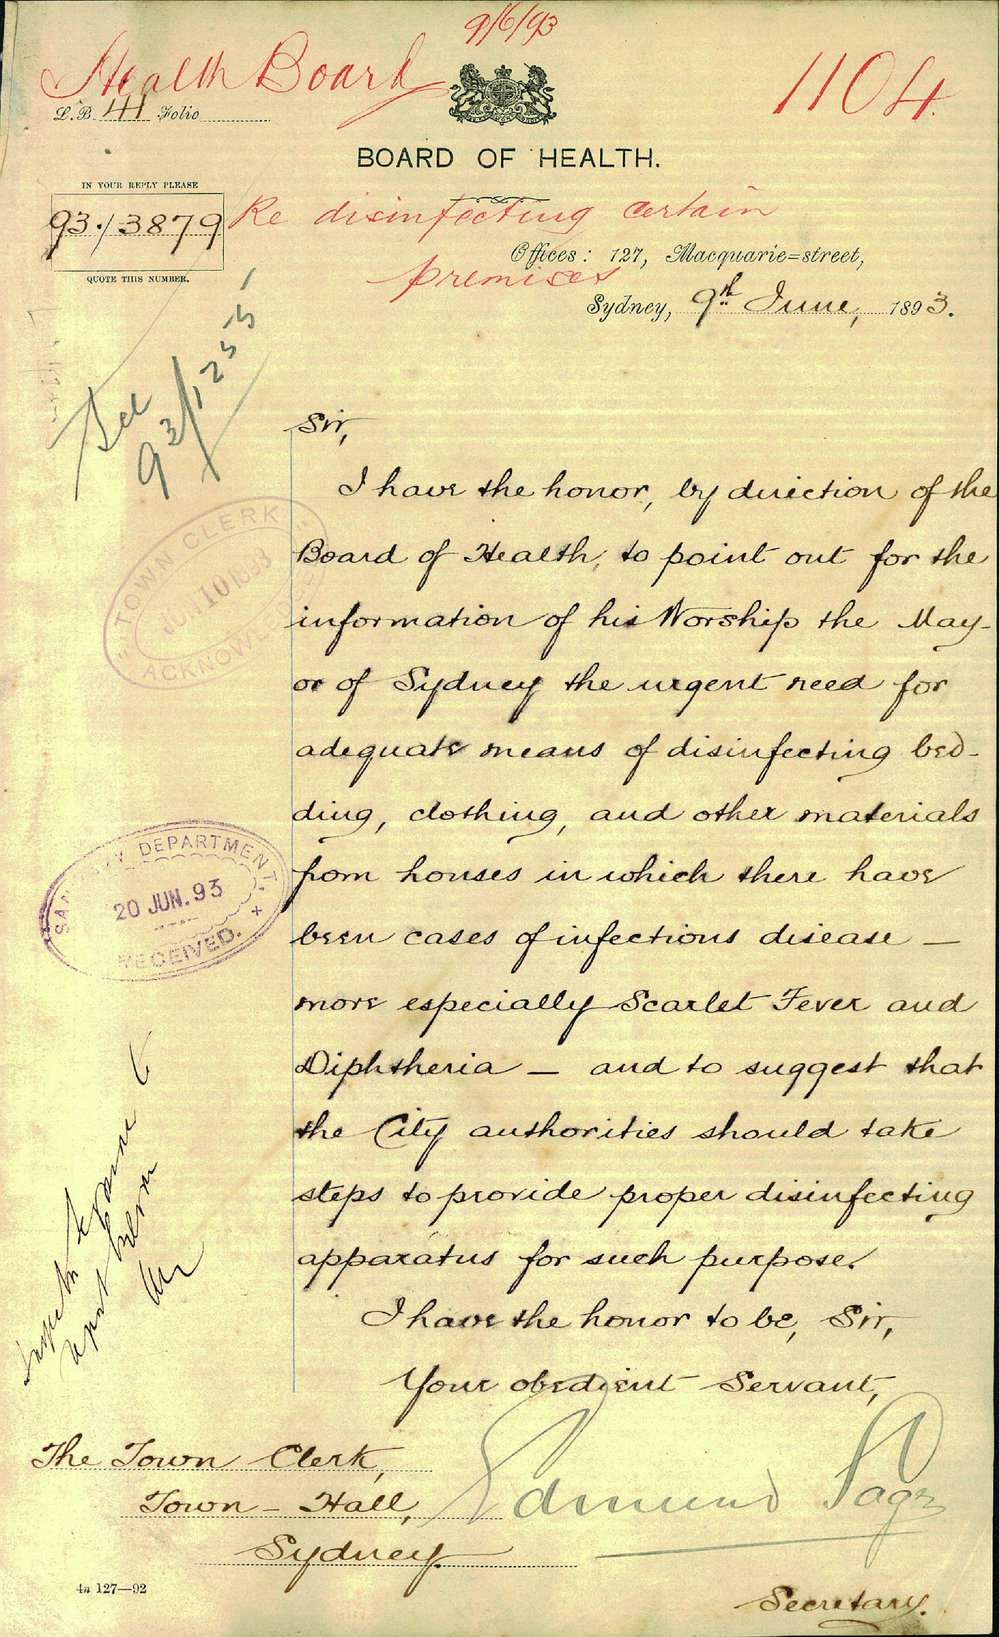 9/6/93
Health Board
1104
L.B. 41 Folio
BOARD OF HEALTH.
IN YOUR REPLY PLEASE
93./3879
QUOTE THIS NUMBER.
Re disinfecting certain
premises
Offices: 127, Macquarie=street,
Sydney, 9th June, 1893.
See
93/1255
Sir,
I have the honor, by direction of the
Board of Health, to point out for the
information of his Worship the May-
or of Sydney the urgent need for
adequate means of disinfecting bed-
ding, clothing, and other materials
from houses in which there have
been cases of infectious disease —
more especially Scarlet Fever and
Diphtheria — and to suggest that
the City authorities should take
steps to provide proper disinfecting
apparatus for such purpose.
I have the honor to be, Sir,
Your obedient Servant,
Edmund Sager
Secretary.
TOWN CLERK
JUN 10 1893
SANITARY DEPARTMENT.
20 JUN. 93
RECEIVED.
The Town Clerk,
Town-Hall,
Sydney.
4n 127—92